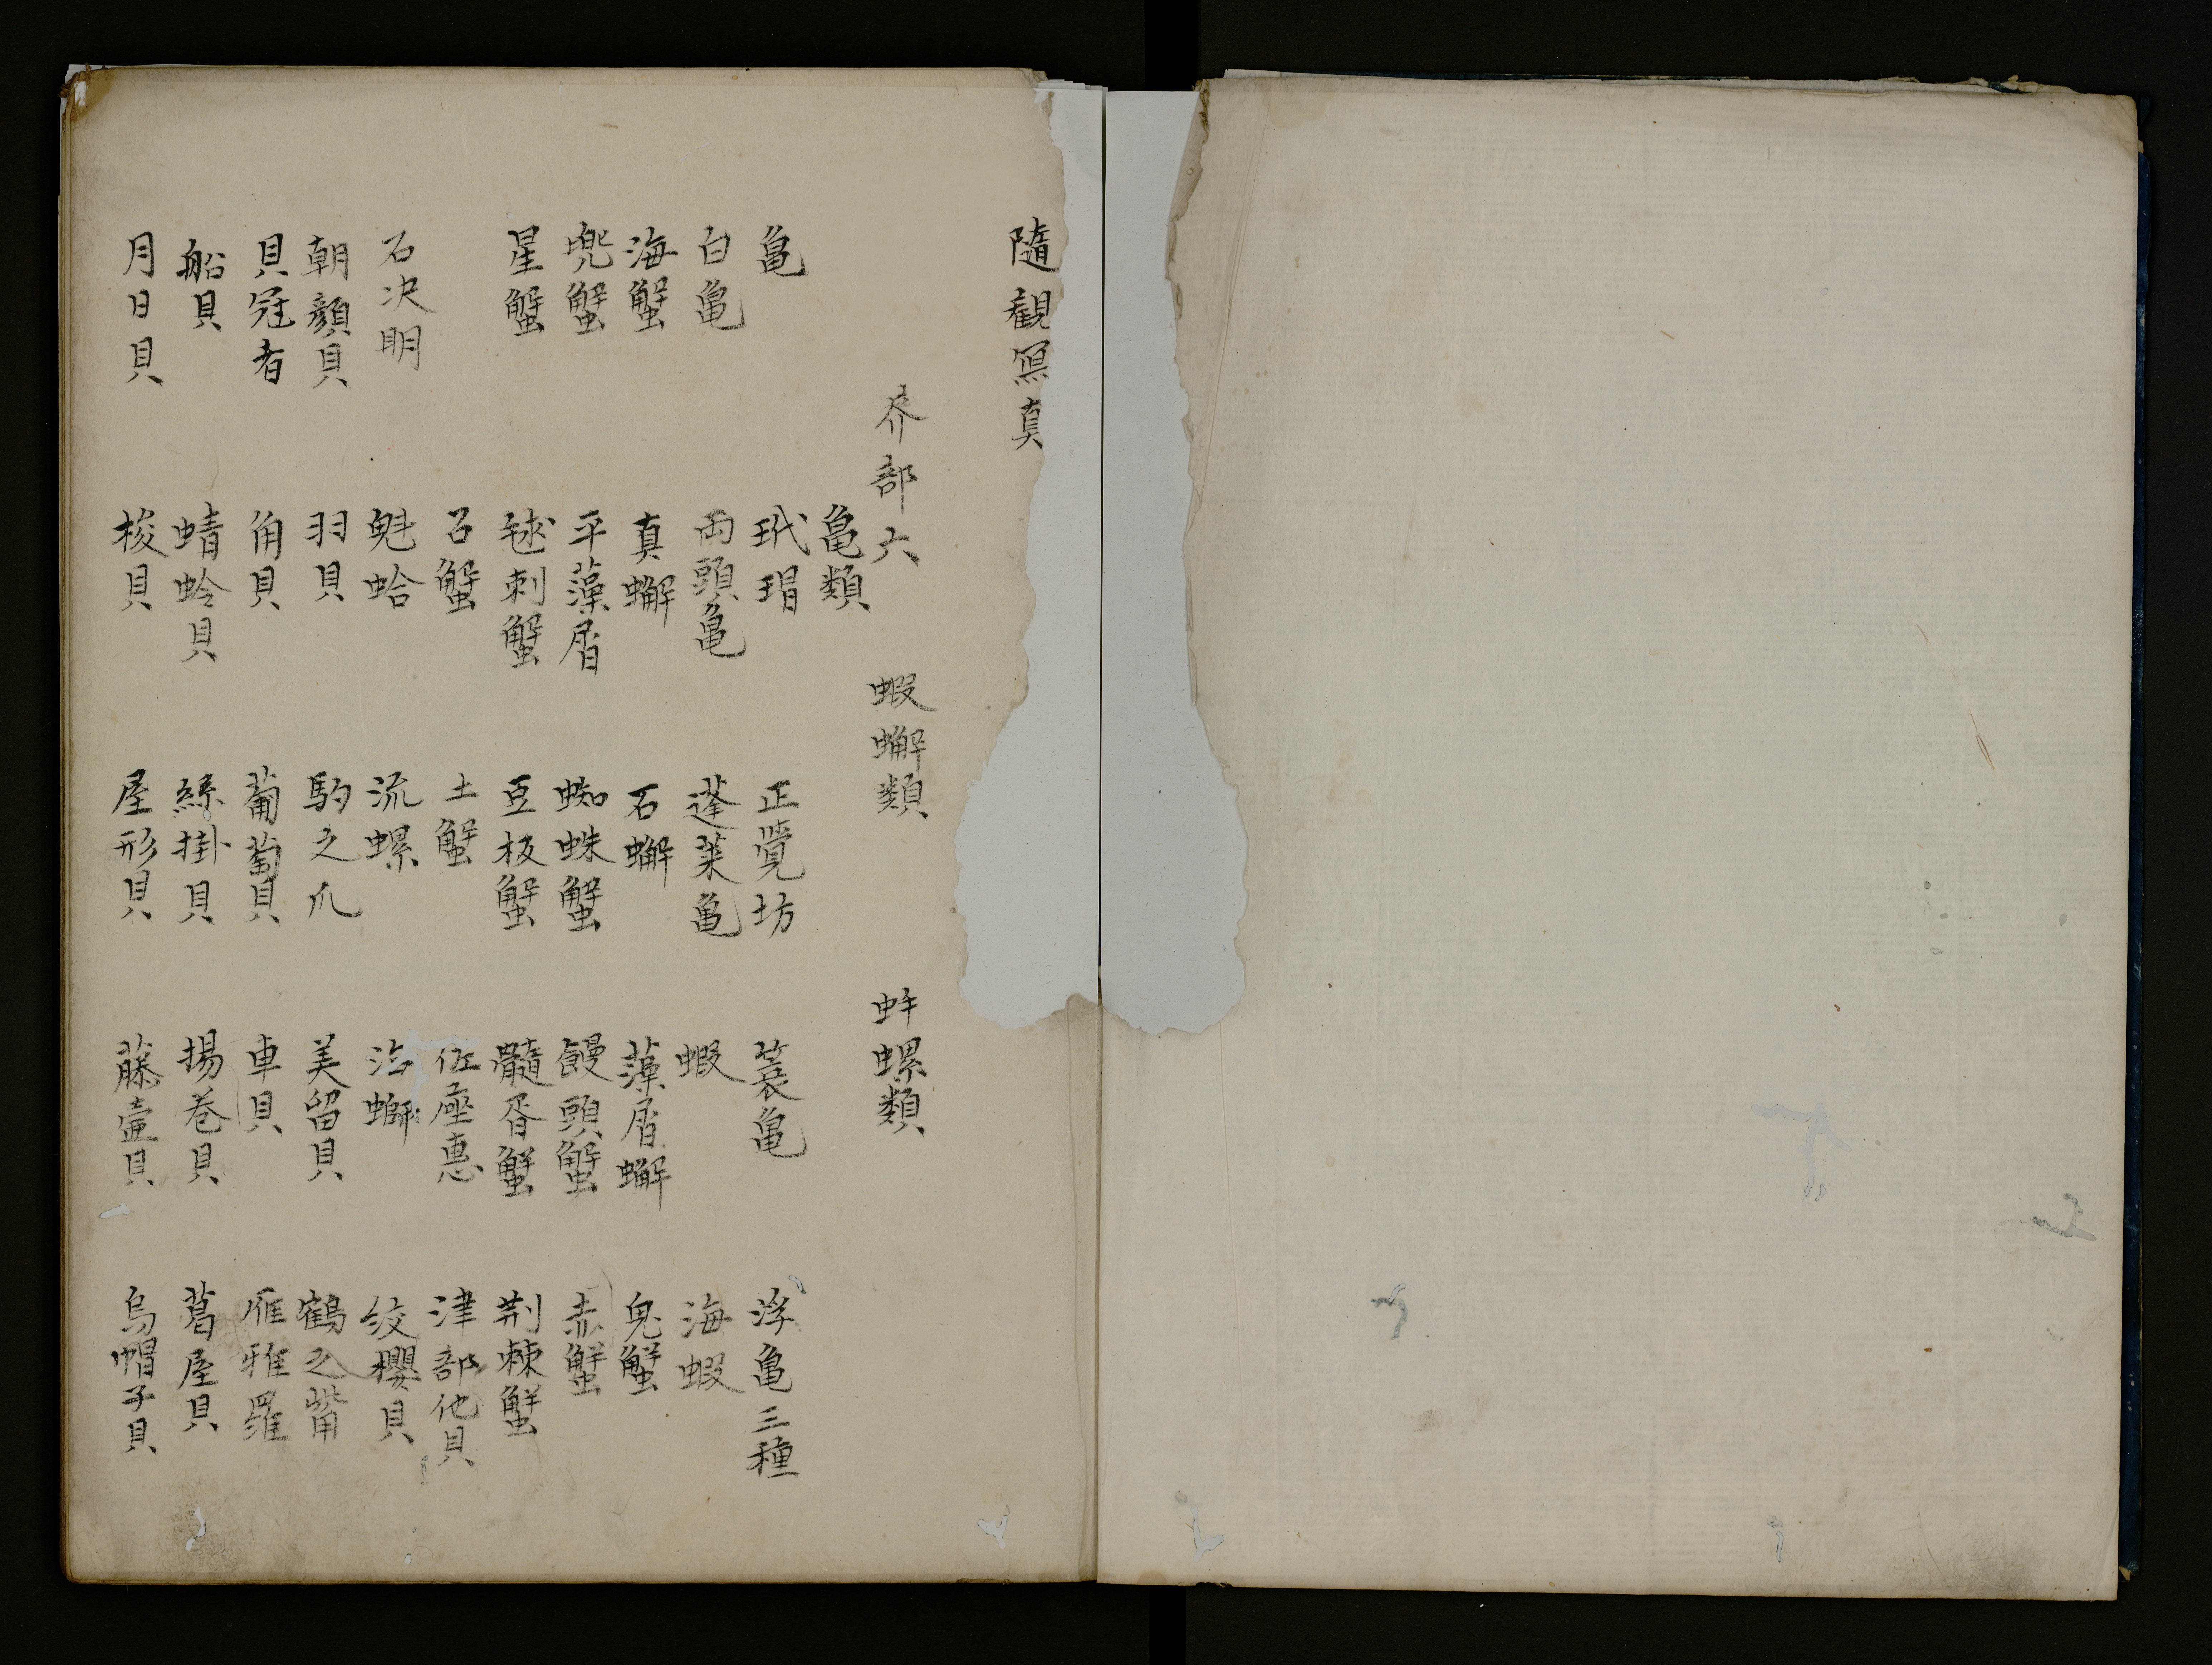 隨觀寫真
介部六 蝦蠏類 蚌螺類
亀類
亀 玳瑁 正覚坊 蓑亀 浮亀三種
白亀 両頭亀 蓬莱亀 蝦 海蝦
海蟹 真蠏 石蠏 藻屑蠏 鬼蟹
兜蟹 平藻屑 蜘蛛蟹 饅頭蟹 赤蟹
星蟹 毬刺蟹 豆板蟹 髓脊蟹 荆棘蟹
石蟹 土蟹 佐座恵 津部他貝
石决明 魁蛤 流螺 沙螄 紋櫻貝
朝顔貝 羽貝 駒之爪 美留貝 鶴之嘴
貝冠者 角貝 葡萄貝 車貝 雁雅羅
船貝 蜻蛉貝 絲掛貝 揚巻貝 葛屋貝
月日貝 梭貝 屋形貝 藤壷貝 烏帽子貝